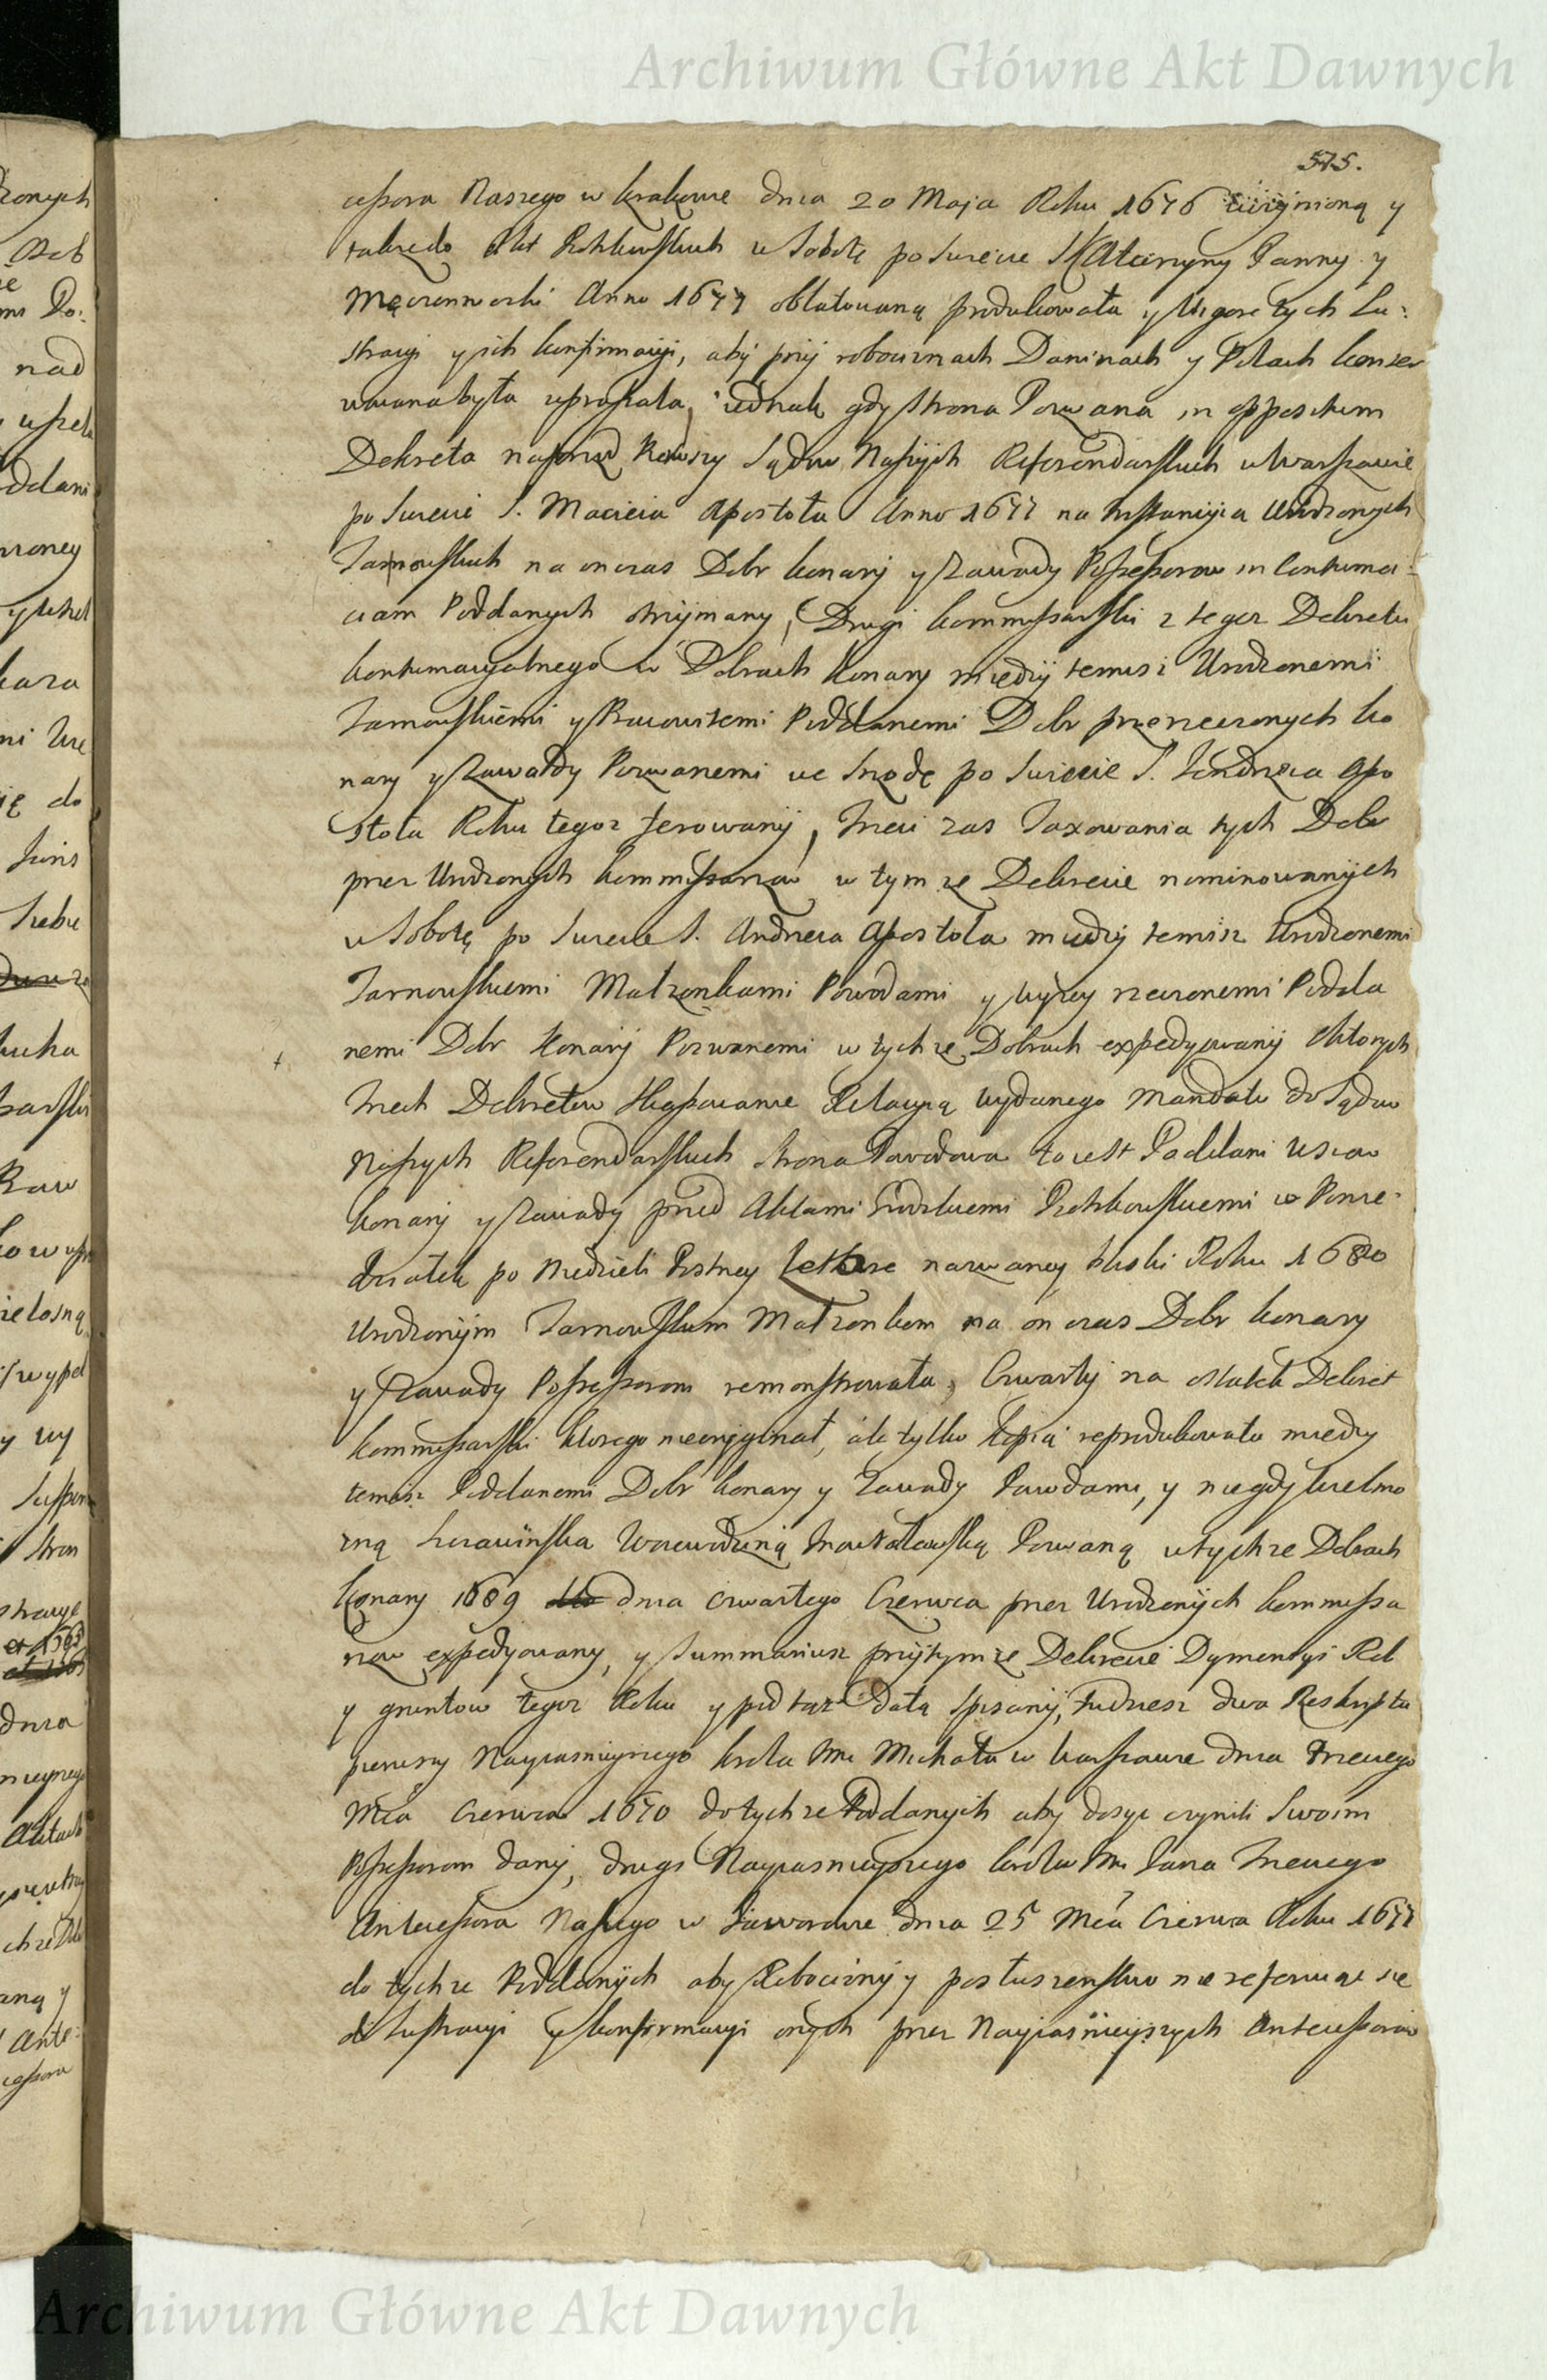 Archiwum Główne Akt Dawnych
575.
cessora Naszego w Krakowie dnia 20 Maja Roku 1676 uczynioną y
takze do Akt Piotrkowskich w Sobotę po Swięcie S. Katarzyny Panny y
Męczenniczki Anno 1677 oblatowaną produkowała y tych Lu:
stracyi y ich konfirmacyi, aby przy robociznach Daninach y Polach konser
wowana była upraszała, iednak gdy strona Pozwana in oppositum
Dekreta naprzod Pierwszy Sądow Naszych Referendarskich w Warszawie
po Swięcie S. Macieia Apostoła Anno 1677 na Instancyia Urodzonych
Tarnowskich na onczas Dobr Konary y Zawady Possessorow in Contuma-
ciam Poddanych otrzymany, Drugi kommissarski z tegoz Dekretu
kontumacyalnego w Dobrach Konary między temisz Urodzonemi
Tarnowskiemi y Pracowitemi Poddanemi Dobr przerzeczonych Ko
nary y Zawady Pozwanemi we Srzodę po Swięcie S. Jendrzeia Apo
stoła Roku tegoz ferowany, trzeci zas Taxowania tych Dobr
przez Urodzonych kommissarzow w tymze Dekrecie nominowanych
w Sobotę po Swięcie S. Andrzeia Apostoła między temisz Urodzonemi
Tarnowskiemi Małzonkami Powodami y wyzey rzeczonemi Podda
nemi Dobr Konary Pozwanemi w tychze Dobrach expedyowany ktorych
trzech Dekretow Relacyą wydanego Mandatu do Sądow
Naszych Referendarskich strona Powodowa to iest Poddani wsiow
Konary y Zawady przed Aktami Grodzkiemi Piotrkowskiemi w Ponie-
działek po Niedzieli Postney Lætare nazwaney Roku 1680
Urodzonym Tarnowskim Małzonkom na on czas Dobr Konary
y Zawady Possessorom remonstrowała, Czwarty na ostatek Dekret
kommissarski ktorego nieoryginał, ale tylko kopią reprodukowała między
temisz Poddanemi Dobr Konary y Zawady Powodami, y niegdy Wielmo
zną Szczawińska Woiewodziną Inowrocławską Pozwaną w tychze Dobrach
Konary 1689 dnia czwartego Czerwca przez Urodzonych kommissa
rzow expedyowany, y Summariusz przytymze Dekrecie Dymensyi Rol
y gruntow tegoz Roku y pod taz datą spisany, tudziesz dwa Reskrypta
pierwszy Nayiasnieyszego krola Jmci Michała w Warszawie dnia trzeciego
Mca Czerwca 1670 do tychze Poddanych aby dosyc czynili Swoim
Possessorom dany, drugi Nayiasnieyszego krola Jmci Jana Trzeciego
Antecessora Naszego w Jaworowie dnia 25 Mca Czerwca Roku 1677
do tychze Poddanych aby Robocizny y posłuszenstwo nie referuiąc sie
do Lustracyi y konfirmacyi onych przez Nayiasnieyszych Antecessorow
Archiwum Główne Akt Dawnych